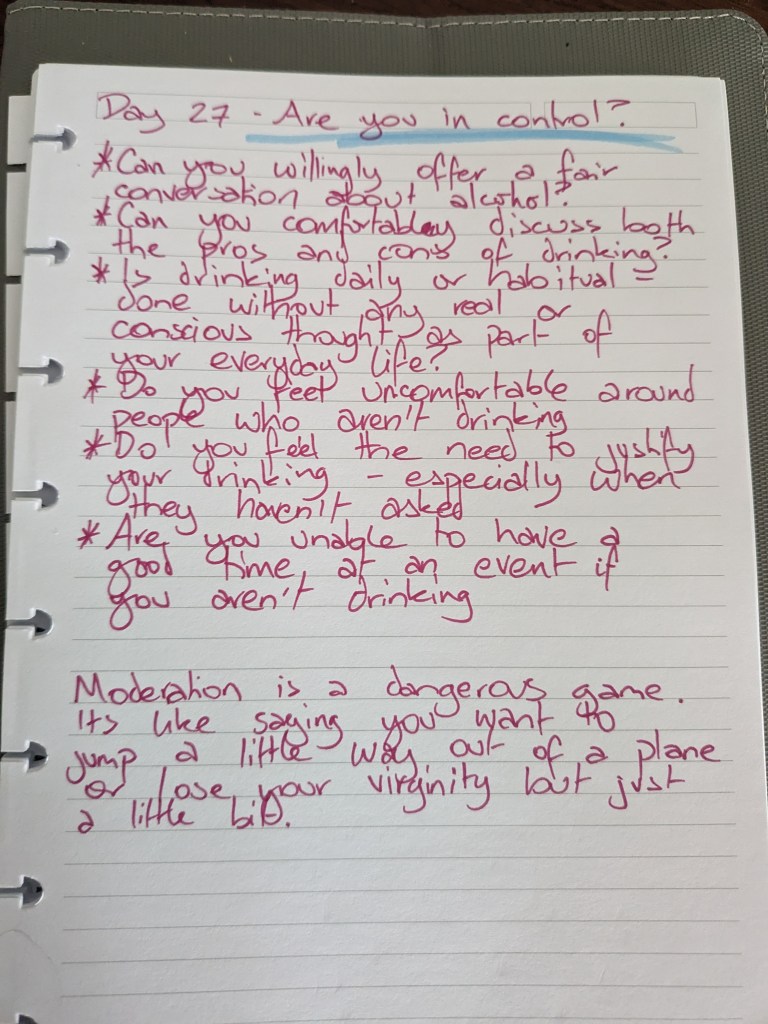 Day 27 - Are you in control?
*Can you willingly offer a fair
conversation about alcohol?
*Can you comfortabley discuss both
the pros and cons of drinking?
* Is drinking daily or habitual =
done without any real or
conscious thought as part of
your everyday life?
* Do you feel uncomfortable around
people who aren't drinking
*Do you feel the need to justify
your drinking - especially when
they haven't asked
* Are you unable to have a
good time at an event if
you aren't drinking
Moderation is a dangerous game.
Its like saying you want to
jump a little way out of a plane
or lose your virginity but just
a little bit.